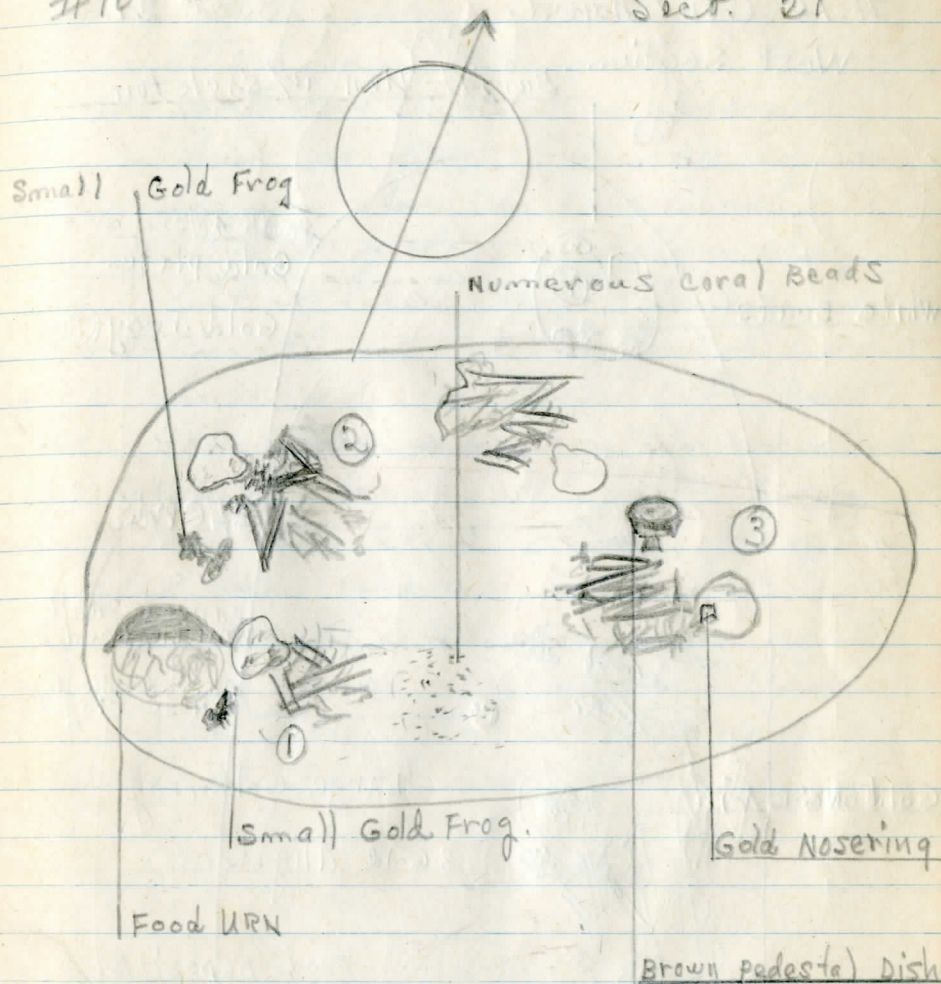 Sect. 21
Small Gold Frog
Numerous Coral Beads
②
③
①
Small Gold Frog.
Gold Nosering
Food URN
Brown Pedestal Dish